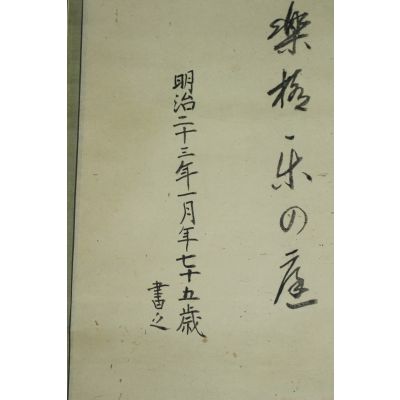 樂極来の庭
明治二十三年一月年七十五歳
書之